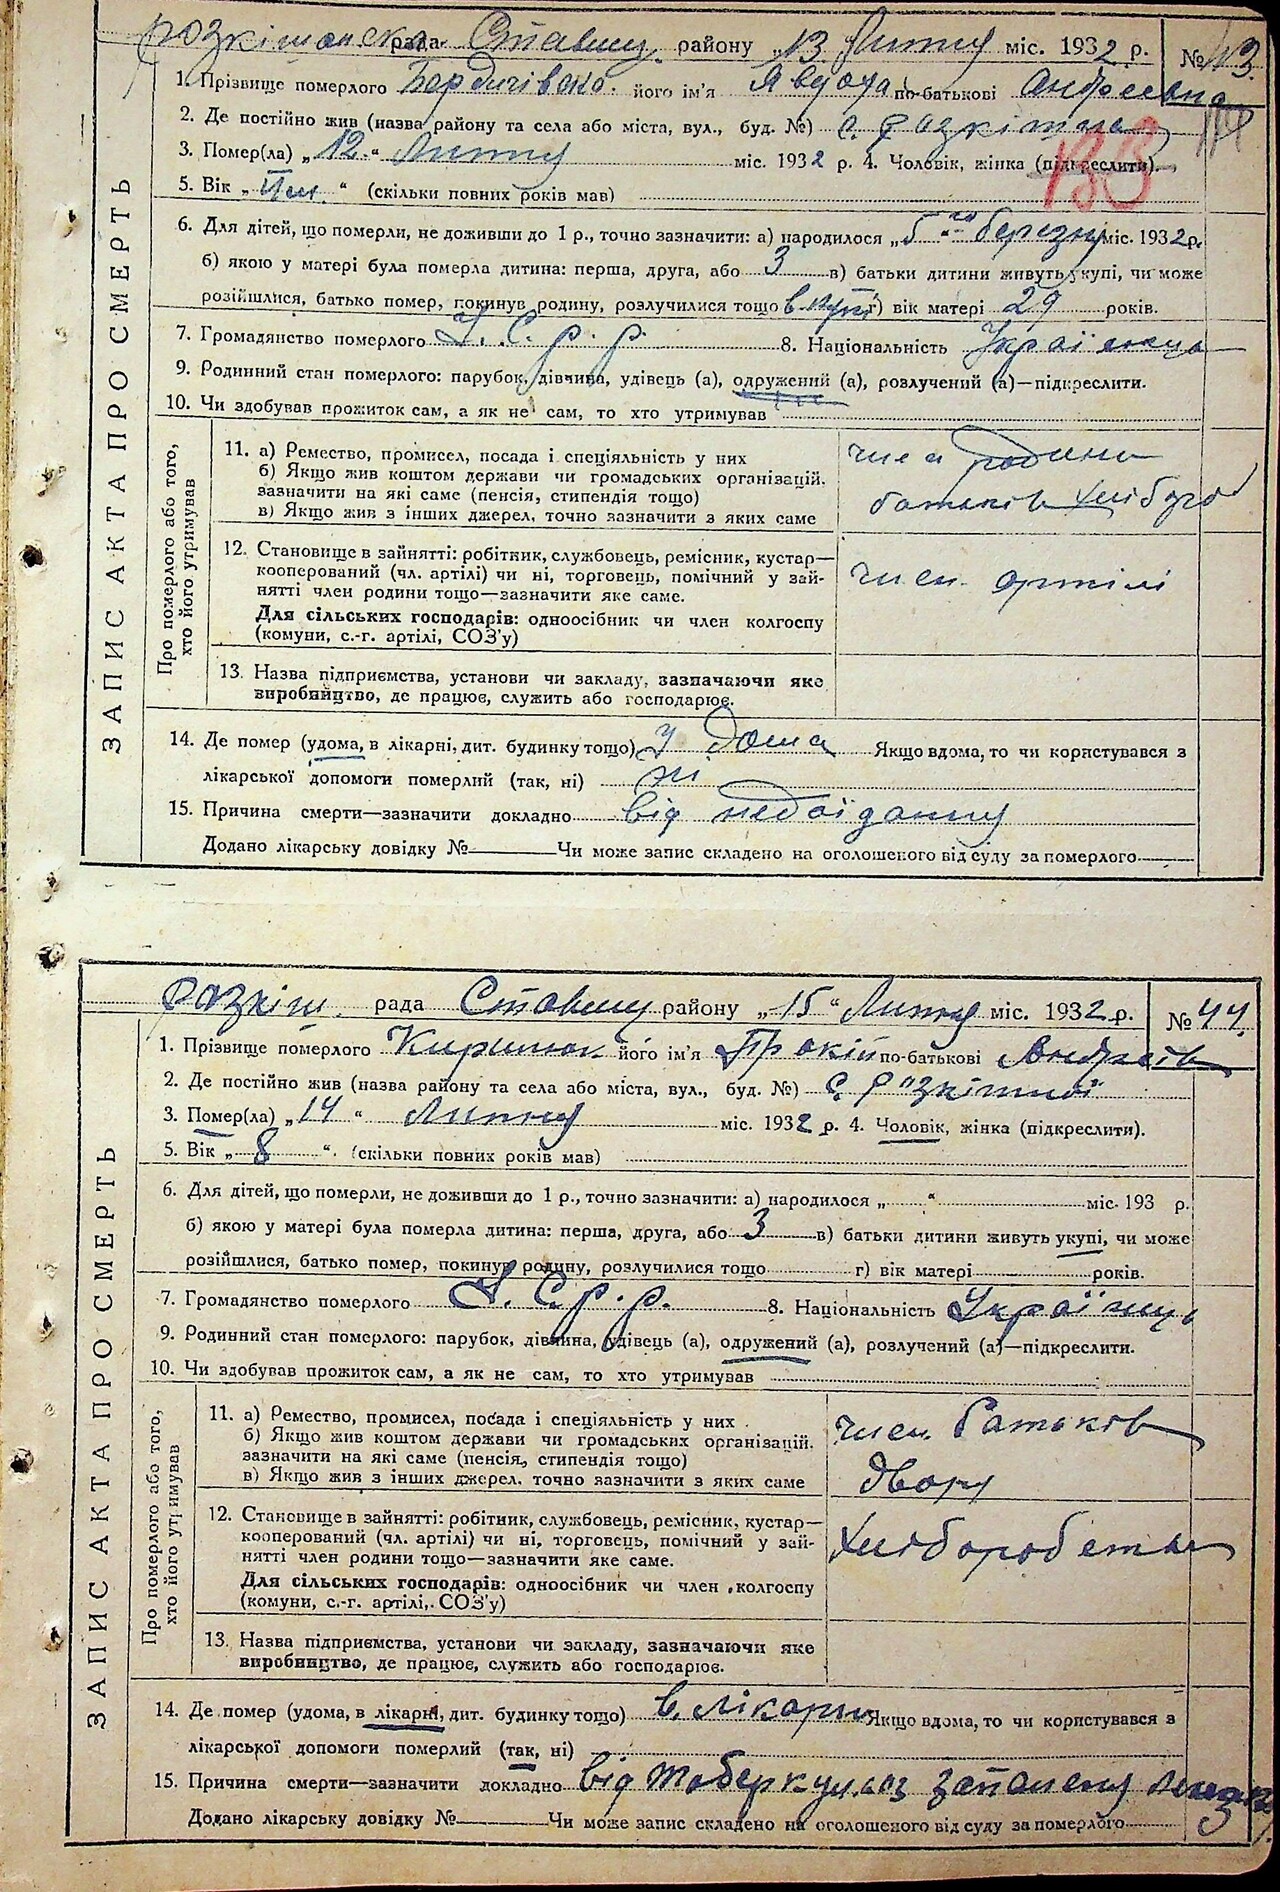 розкішанська рада Ставищ. району „13 Липня міс. 1932 р. № 43.
1. Прізвище померлого Бердичівська. його ім'я Явдоха по-батькові Андреевна
2. Де постійно жив (назва району та села або міста, вул., буд. №) с. Розкішна
3. Помер(ла) „12“ Липня міс. 1932 р. 4. Чоловік, жінка (підкреслити).
133
5. Вік „ “ (скільки повних років мав)
6. Для дітей, що померли, не доживши до 1 р., точно зазначити: а) народилося „5“го березня міс. 1932 р.
б) якою у матері була померла дитина: перша, друга, або 3 в) батьки дитини живуть укупі, чи може
розійшлися, батько помер, покинув родину, розлучилися тощо в купі г) вік матері 29 років.
7. Громадянство померлого У. С. р. р. 8. Національність Українець
9. Родинний стан померлого: парубок, дівчина, удівець (а), одружений (а), розлучений (а)—підкреслити.
10. Чи здобував прожиток сам, а як не сам, то хто утримував
ЗАПИС АКТА ПРО СМЕРТЬ
Про померлого або того, хто його утримував
11. а) Ремество, промисел, посада і спеціяльність у них
б) Якщо жив коштом держави чи громадських організацій.
зазначити на які саме (пенсія, стипендія тощо)
в) Якщо жив з інших джерел, точно зазначити з яких саме
член родини
батьків хлібороб
12. Становище в зайнятті: робітник, службовець, ремісник, кустар—
кооперований (чл. артілі) чи ні, торговець, помічний у зай-
нятті член родини тощо—зазначити яке саме.
Для сільських господарів: одноосібник чи член колгоспу
(комуни, с.-г. артілі, СОЗ'у)
член артілі
13. Назва підприємства, установи чи закладу, зазначаючи яке
виробництво, де працює, служить або господарює.
14. Де помер (удома, в лікарні, дит. будинку тощо) у дома Якщо вдома, то чи користувався з
лікарської допомоги померлий (так, ні) ні
15. Причина смерти—зазначити докладно від недоїдання
Додано лікарську довідку № Чи може запис складено на оголошеного від суду за померлого
розкіш. рада Ставищ району „15“ Липня міс. 1932 р. № 44.
1. Прізвище померлого Киришок його ім'я Прокіп по-батькові Андреів
2. Де постійно жив (назва району та села або міста, вул., буд. №) с. Розкішної
3. Помер(ла) „14“ Липня міс. 1932 р. 4. Чоловік, жінка (підкреслити).
5. Вік „8“ (скільки повних років мав)
6. Для дітей, що померли, не доживши до 1 р., точно зазначити: а) народилося „ “ міс. 193 р.
б) якою у матері була померла дитина: перша, друга, або 3 в) батьки дитини живуть укупі, чи може
розійшлися, батько помер, покинув родину, розлучилися тощо г) вік матері років.
7. Громадянство померлого У. С. р. р. 8. Національність Українець
9. Родинний стан померлого: парубок, дівчина, удівець (а), одружений (а), розлучений (а)—підкреслити.
10. Чи здобував прожиток сам, а як не сам, то хто утримував
ЗАПИС АКТА ПРО СМЕРТЬ
Про померлого або того, хто його утримував
11. а) Ремество, промисел, посада і спеціяльність у них
б) Якщо жив коштом держави чи громадських організацій.
зазначити на які саме (пенсія, стипендія тощо)
в) Якщо жив з інших джерел, точно зазначити з яких саме
член. батьків
двору
12. Становище в зайнятті: робітник, службовець, ремісник, кустар—
кооперований (чл. артілі) чи ні, торговець, помічний у зай-
нятті член родини тощо—зазначити яке саме.
Для сільських господарів: одноосібник чи член колгоспу
(комуни, с.-г. артілі, СОЗ'у)
Хлібороб
13. Назва підприємства, установи чи закладу, зазначаючи яке
виробництво, де працює, служить або господарює.
14. Де помер (удома, в лікарні, дит. будинку тощо) в. лікарні Якщо вдома, то чи користувався з
лікарської допомоги померлий (так, ні)
15. Причина смерти—зазначити докладно від Тоберкульоз запаленя
Додано лікарську довідку № Чи може запис складено на оголошеного від суду за померлого